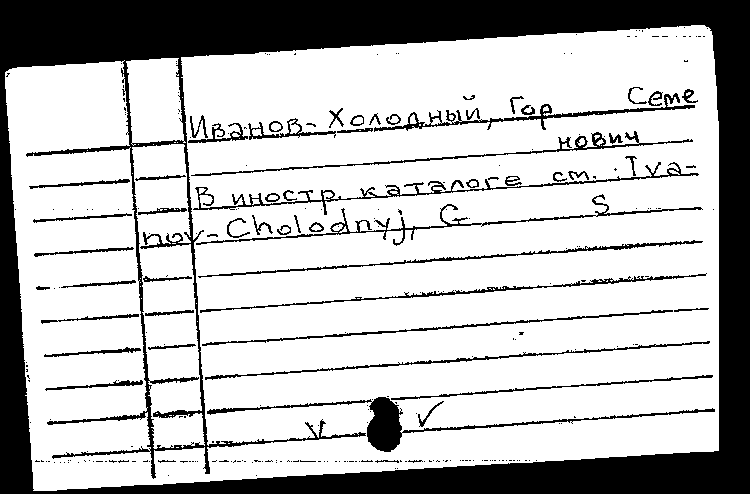 Иванов-Холодный, Гор Семе
нович
В иностр. каталоге см.: Iva-
nov-Cholodnyj, G S